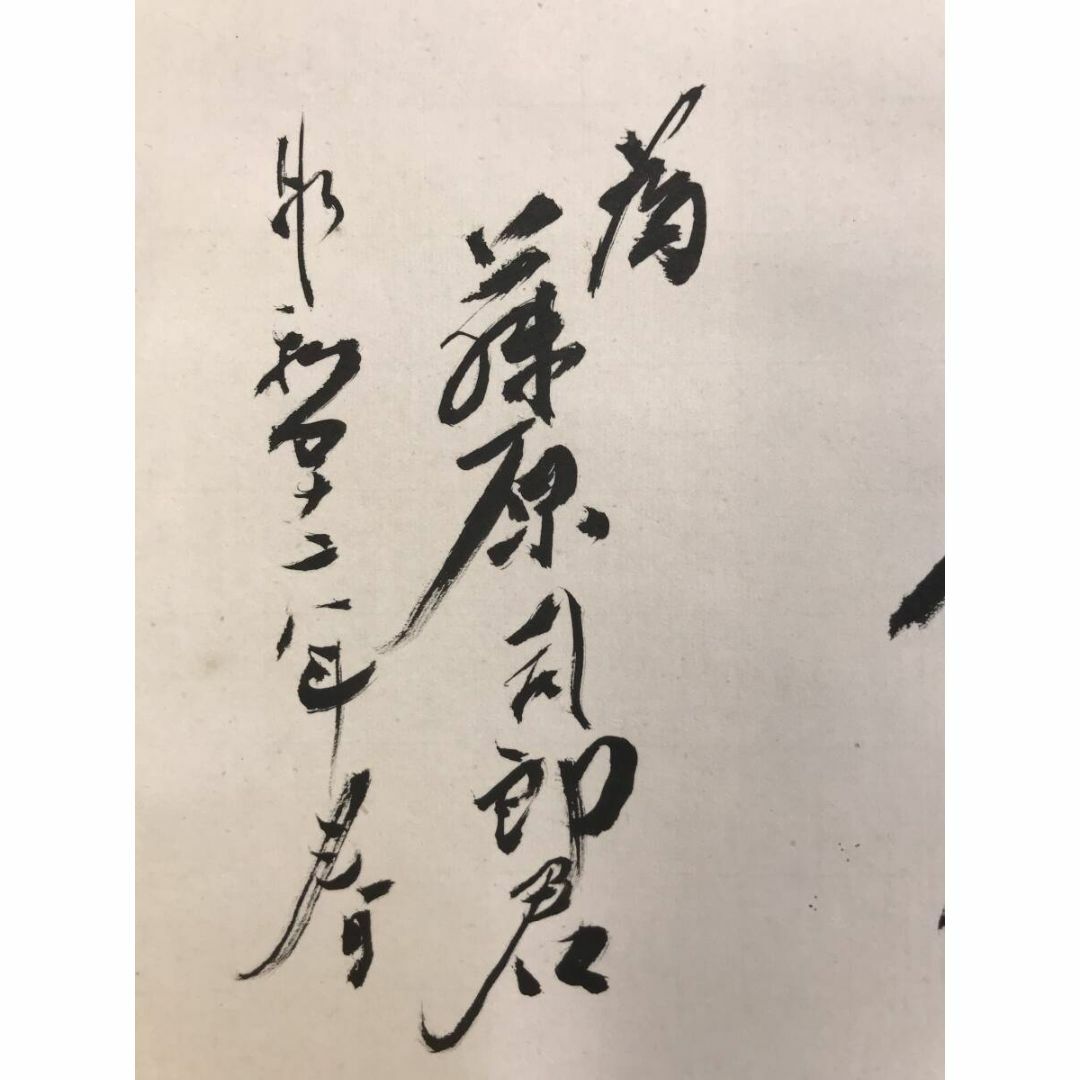 為
藤原司郎君
昭和四十二年春